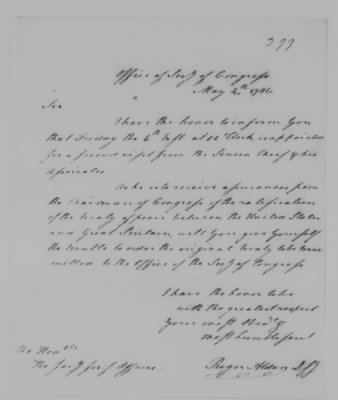 399
Office of Secy of Congress
May 4th 1786
Sir
I have the honor to inform You
that Friday the 5th Inst. at 12 Clock is appointed
for a second visit from the Seneca Chief & his
associates
As he is to receive assurances from
the Chairman of Congress of the ratification
of the treaty of peace between the United States
and Great Britain, will You give Yourself
the trouble to order the original treaty to be trans
mitted to the Office of the Secy of Congress
I have the honor to be
with the greatest respect
Your most Obedt &
most humble servt
Roger Alden D Sy
The Honble
The Secy for f. Affairs